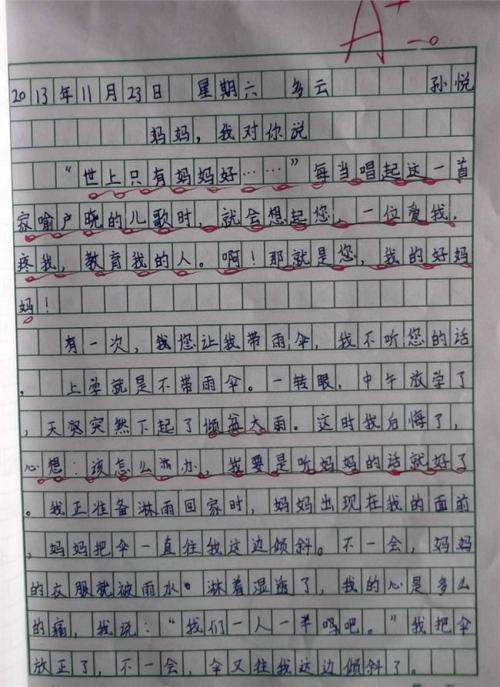 A+
2013年11月23日 星期六 多云 孙悦
妈妈,我对你说
“世上只有妈妈好……”每当唱起这一首
家喻户晓的儿歌时,就会想起您,一位爱我,
疼我,教育我的人。啊!那就是您,我的好妈
妈!
有一次,我您让我带雨伞,我不听您的话
,上学就是不带雨伞。一转眼,中午放学了
,天突突然下起了倾盆大雨。这时我后悔了,
心想:该怎么办,我要是听妈妈的话就好了
。我正准备淋雨回家时,妈妈出现在我的面前
,妈妈把伞一直往我这边倾斜。不一会,妈妈
的衣服就被雨水淋着湿透了,我的心是多么
的痛,我说:“我们一人一半吗吧。”我把伞
放正了,不一会,伞又往我这边倾斜了。